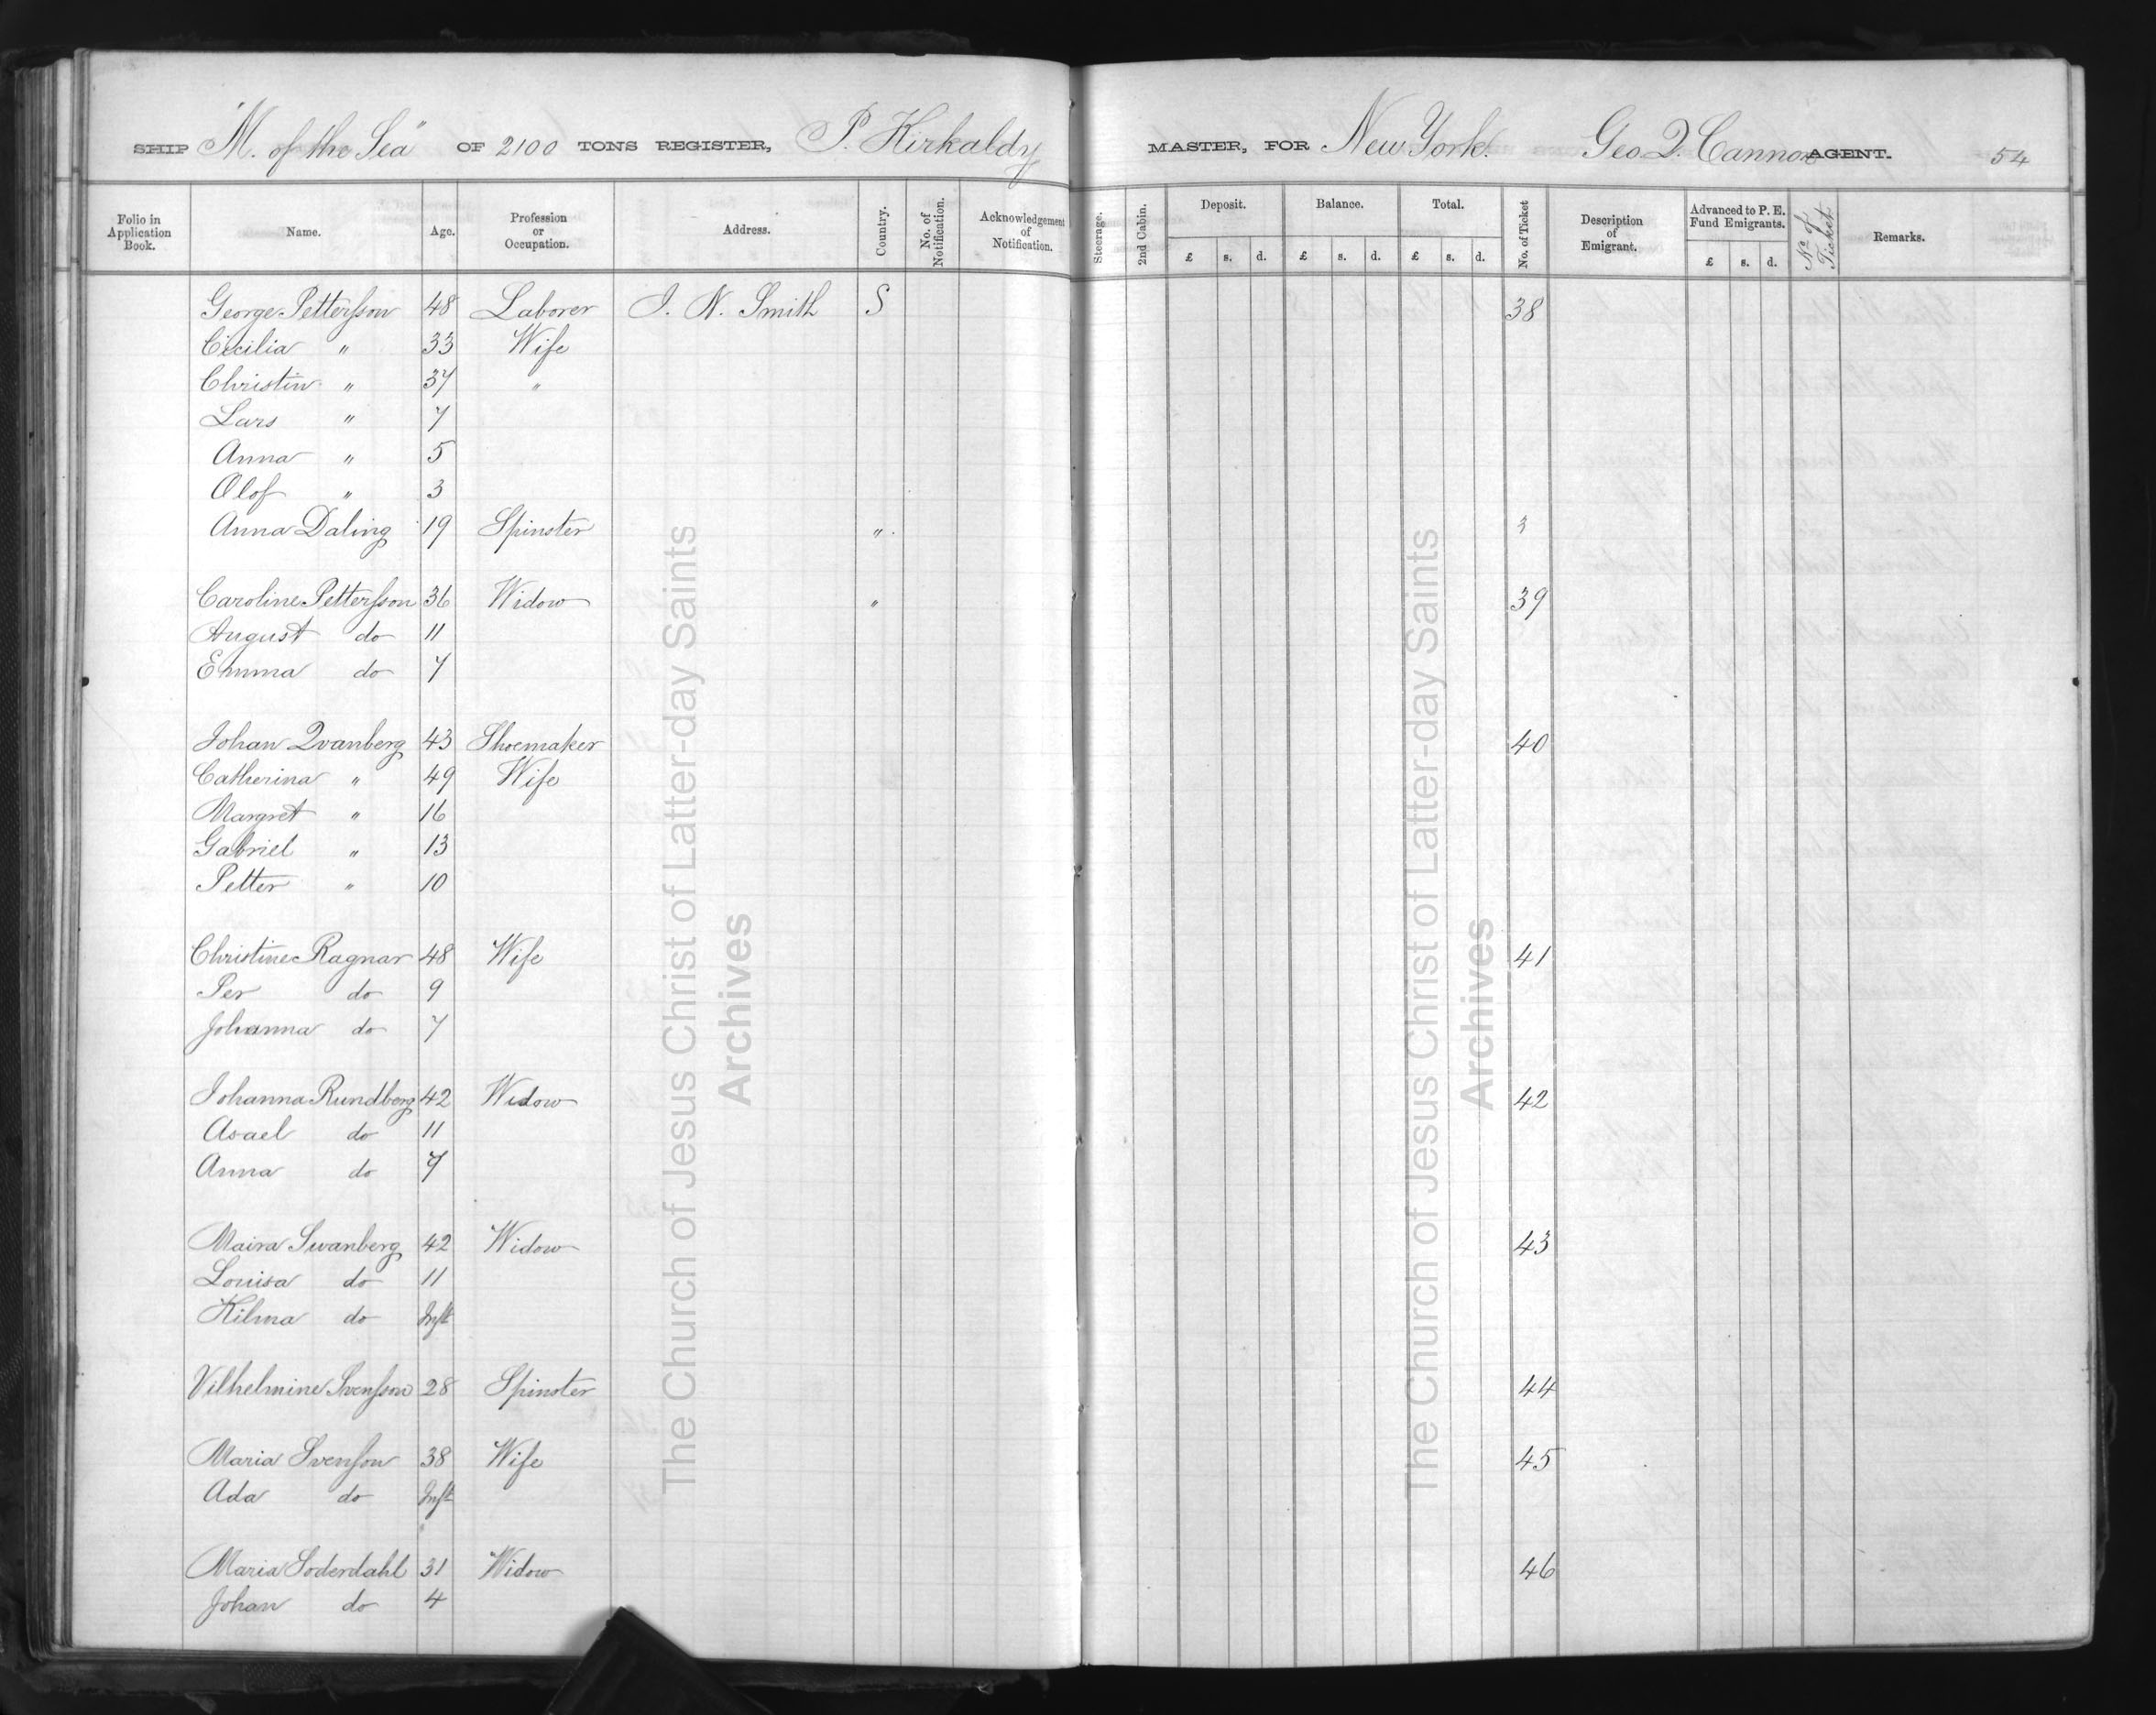 SHIP "M. of the Sea" OF 2100 TONS REGISTER, P. Kirkaldy MASTER, FOR New York. Geo Q. Cannon AGENT. 54
Folio in Application Book. Name. Age. Profession or Occupation. Address. Country. No. of Notification. Acknowledgement of Notification. Steerage. 2nd Cabin. Deposit. Balance. Total. No. of Ticket Description of Emigrant. Advanced to P. E. Fund Emigrants. No of Ticket Remarks.
£ s. d. £ s. d. £ s. d. £ s. d.
George Pettersson 48 Laborer J. N. Smith S 38
Cicilia " 33 Wife
Christin " 37 "
Lars " 7
Anna " 5
Olof " 3
Anna Daling 19 Spinster " 3
Caroline Pettersson 36 Widow " 39
August do 11
Emma do 7
Johan Qvanberg 43 Shoemaker 40
Catherina " 49 Wife
Margret " 16
Gabriel " 13
Petter " 10
Christine Ragnar 48 Wife 41
Per do 9
Johanna do 7
Johanna Rundberg 42 Widow 42
Asael do 11
Anna do 7
Maira Swanberg 42 Widow 43
Louisa do 11
Hilma do Inft
Vilhelmine Svensson 28 Spinster 44
Maria Svensson 38 Wife 45
Ada do Inft
Maria Soderdahl 31 Widow 46
Johan do 4
The Church of Jesus Christ of Latter-day Saints
Archives
The Church of Jesus Christ of Latter-day Saints
Archives